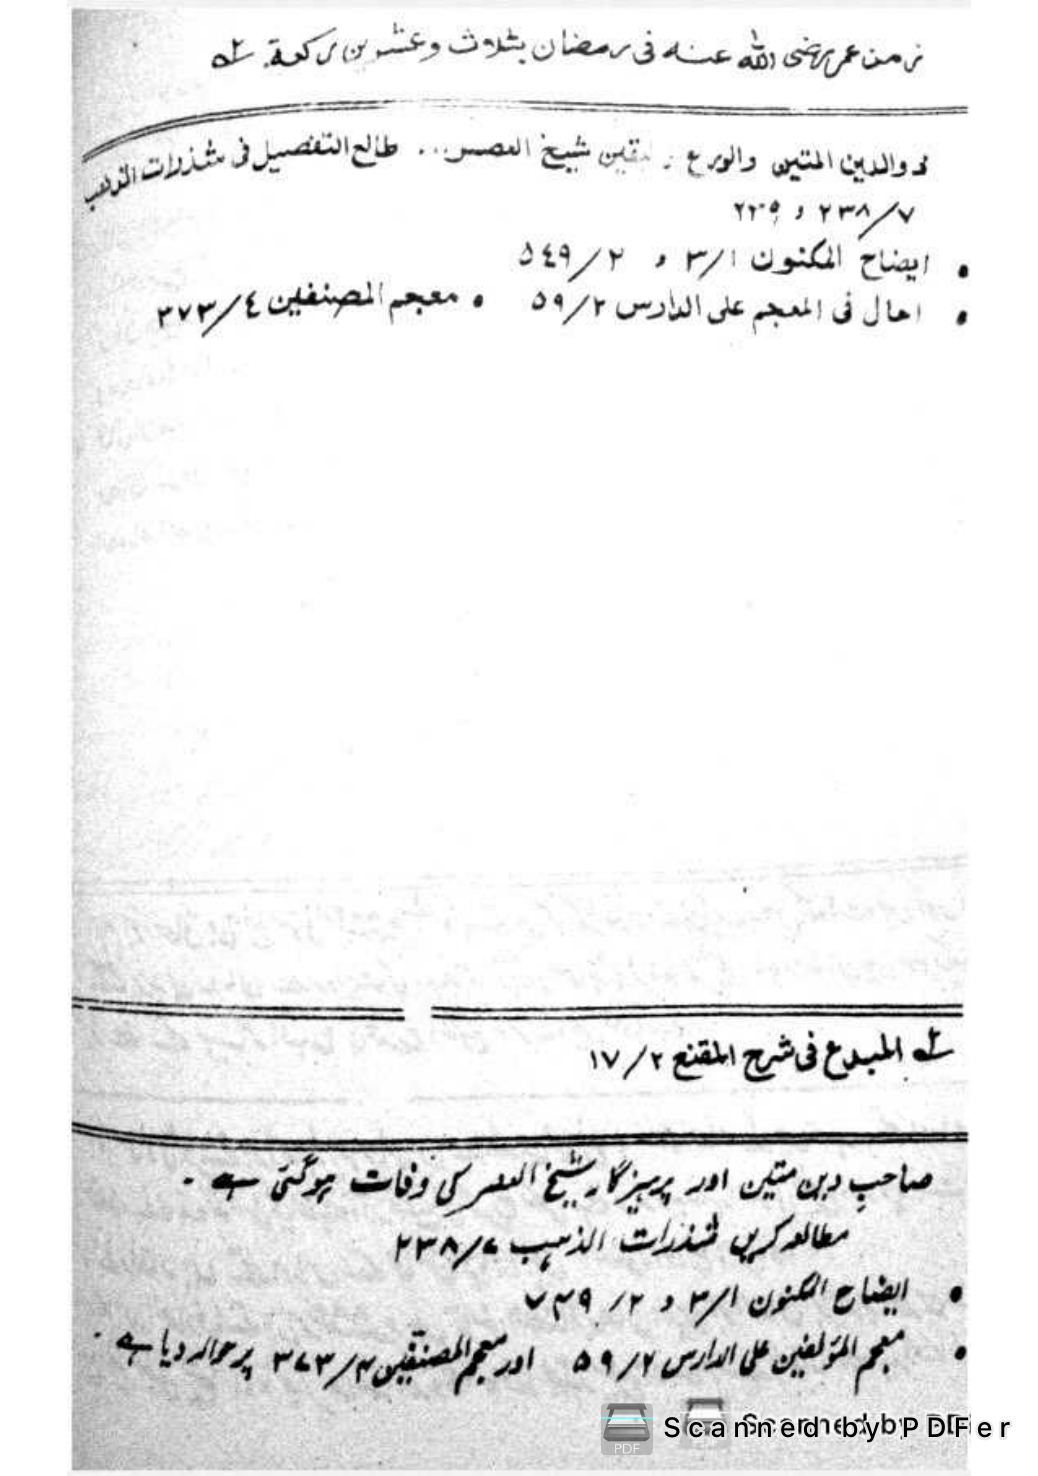 زمن عمر رضی الله عنه فی رمضان بثلاث وعشرین رکعة. لہ
والدین المتین والورع شیخ العصر... طالع التفصیل فی شذرات الذهب
٢٣٨/٧ و ٢٣٩
• ایضاح المکنون ٣/١ و ٥٤٩/٢
• احال فی المعجم علی الدارس ٥٩/٢ • معجم المصنفین ٣٧٣/٤
لہ المبدع فی شرح المقنع ١٧/٢
صاحبِ دین متین اور پرہیزگار شیخ العصر کی وفات ہوگئی ہے۔
مطالعہ کریں شذرات الذہب ۲۳۸/۷
• ایضاح المکنون ۳/۱ و ۲/
• معجم المؤلفین علی الدارس ۵۹/۲ اور معجم المصنفین ۳۷۳/۴ پر حوالہ دیا ہے۔
Scanned by PDFer